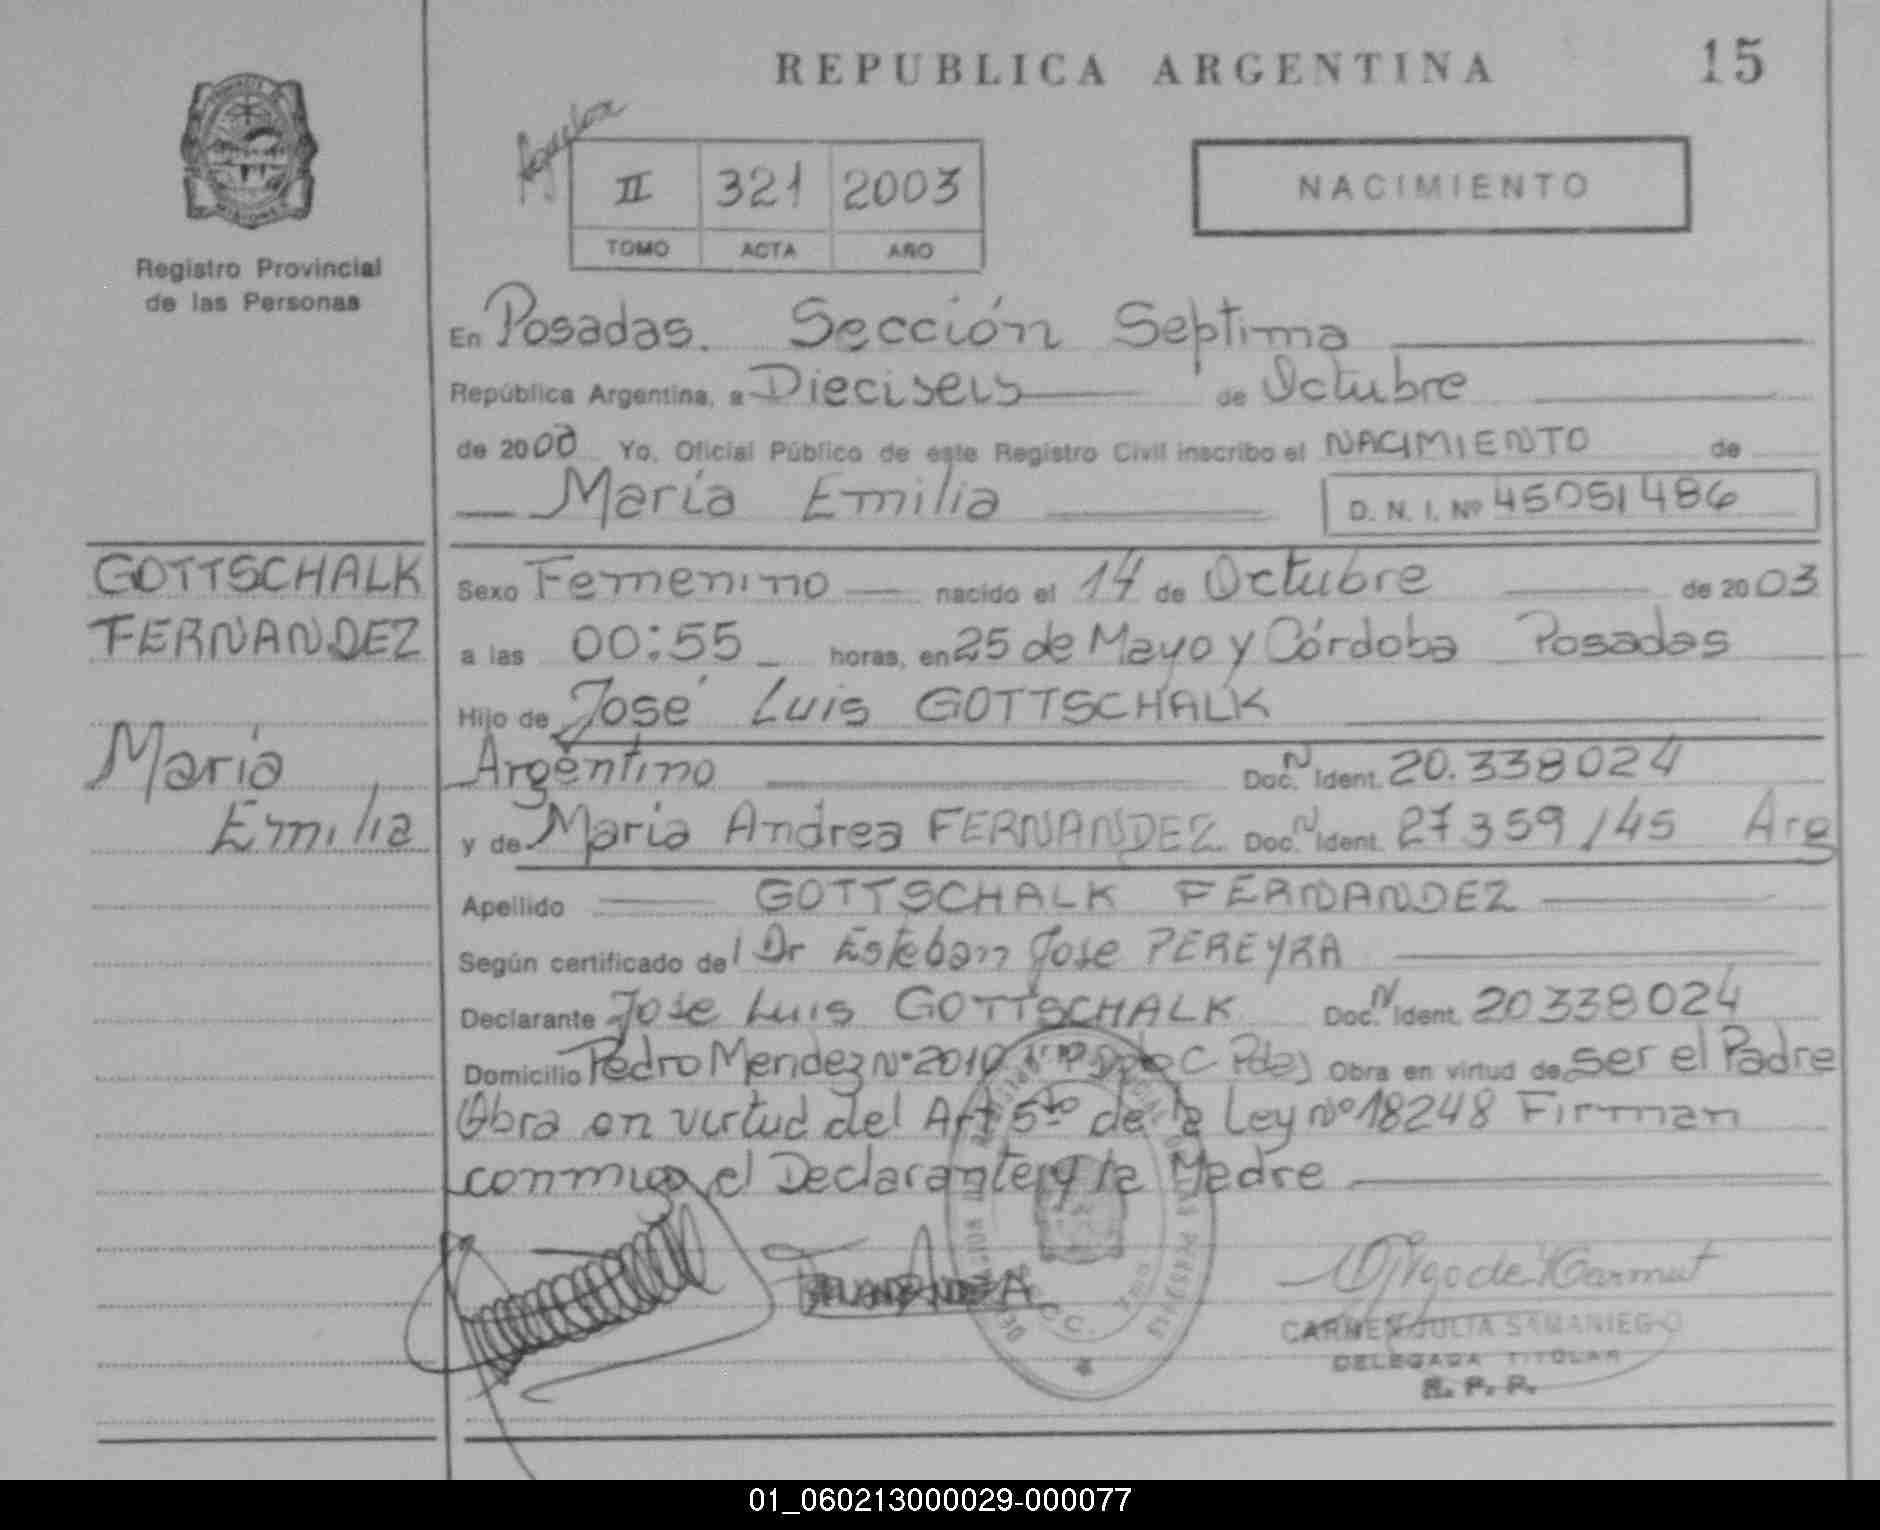 REPUBLICA ARGENTINA
15
II 321 2003
TOMO ACTA AÑO
NACIMIENTO
Registro Provincial
de las Personas
En Posadas. Sección Septima
República Argentina, a Dieciseis de Octubre
de 2003 Yo, Oficial Público de este Registro Civil inscribo el NACIMIENTO de
María Emilia D. N. I. Nº 45051486
GOTTSCHALK
FERNANDEZ
María
Emilia
Sexo Femenino nacido el 14 de Octubre de 2003
a las 00:55 horas, en 25 de Mayo y Córdoba Posadas
Hijo de José Luis GOTTSCHALK
Argentino Doc. N Ident. 20.338024
y de María Andrea FERNANDEZ Doc. N Ident. 27359145 Arg
Apellido GOTTSCHALK FERNANDEZ
Según certificado del Dr Esteban Jose PEREYRA
Declarante Jose Luis GOTTSCHALK Doc. N Ident. 20338024
Domicilio Pedro Mendez Nº 2010 Obra en virtud de ser el Padre
Obra en virtud del Art 5to de la Ley Nº 18248 Firman
conmigo el Declarante y la Madre
CARMEN JULIA SAMANIEGO
DELEGADA TITULAR
R. P. P.
01_060213000029-000077